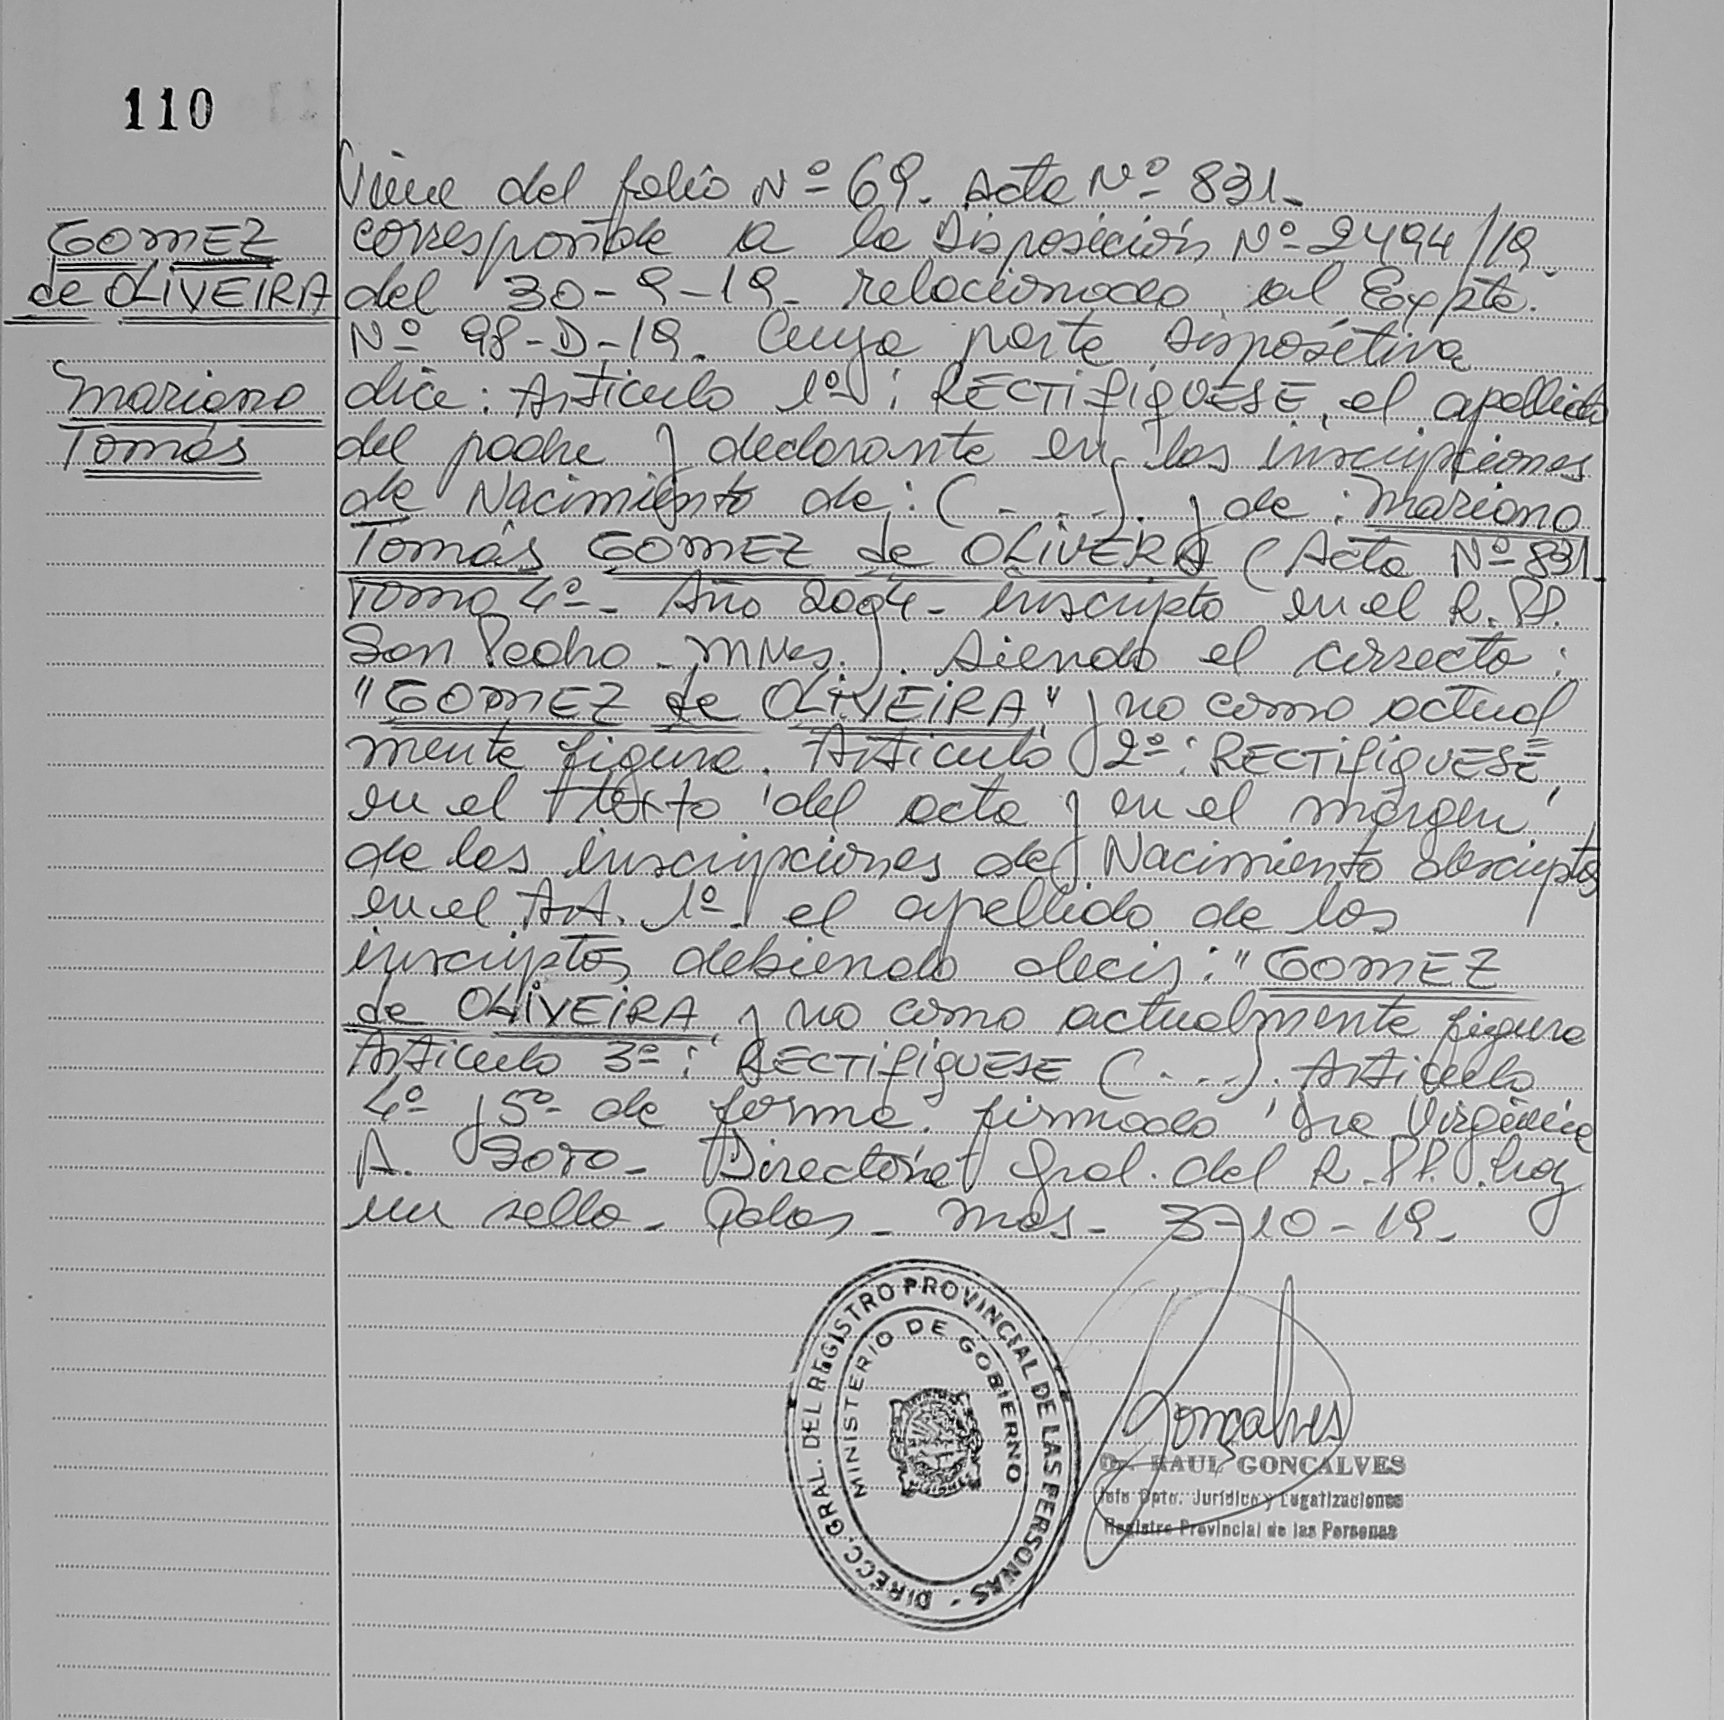 110
GOMEZ
de OLIVEIRA
Mariano
Tomás
Viene del folio Nº 69. Acta Nº 831-
corresponde a la Disposición Nº 2494/19.
del 30-9-19- relacionado al Expte.
Nº 98-D-19. Cuya parte dispositiva
dice: Artículo 1º: RECTIFIQUESE, el apellido
del padre y declarante en las inscripciones
de Nacimiento de: (....). y de: Mariano
Tomás GOMEZ de OLIVERA (Acta Nº 831-
Tomo 4º- Año 2004- inscripto en el R.PP.
San Pedro - Mnes.). Siendo el correcto:
"GOMEZ de OLIVEIRA" y no como actual
mente figura. Artículo 2º: RECTIFIQUESE,
en el texto del acta y en el margen,
de las inscripciones de Nacimiento descriptas
en el Art. 1º el apellido de los
inscriptos, debiendo decir: "GOMEZ
de OLIVEIRA, y no como actualmente figura
Artículo 3º: RECTIFIQUESE (....). Artículo
4º y 5º de forma. firmado Dra Virginia
A. Soto- Directora Gral. del R.PP. hay
un sello. Pdas- Mns- 3-10-19.
DIRECC. GRAL. DEL REGISTRO PROVINCIAL DE LAS PERSONAS -
MINISTERIO DE GOBIERNO
Gonçalves
Dr. RAUL GONÇALVES
Jefe Dpto. Jurídico y Legalizaciones
Registro Provincial de las Personas